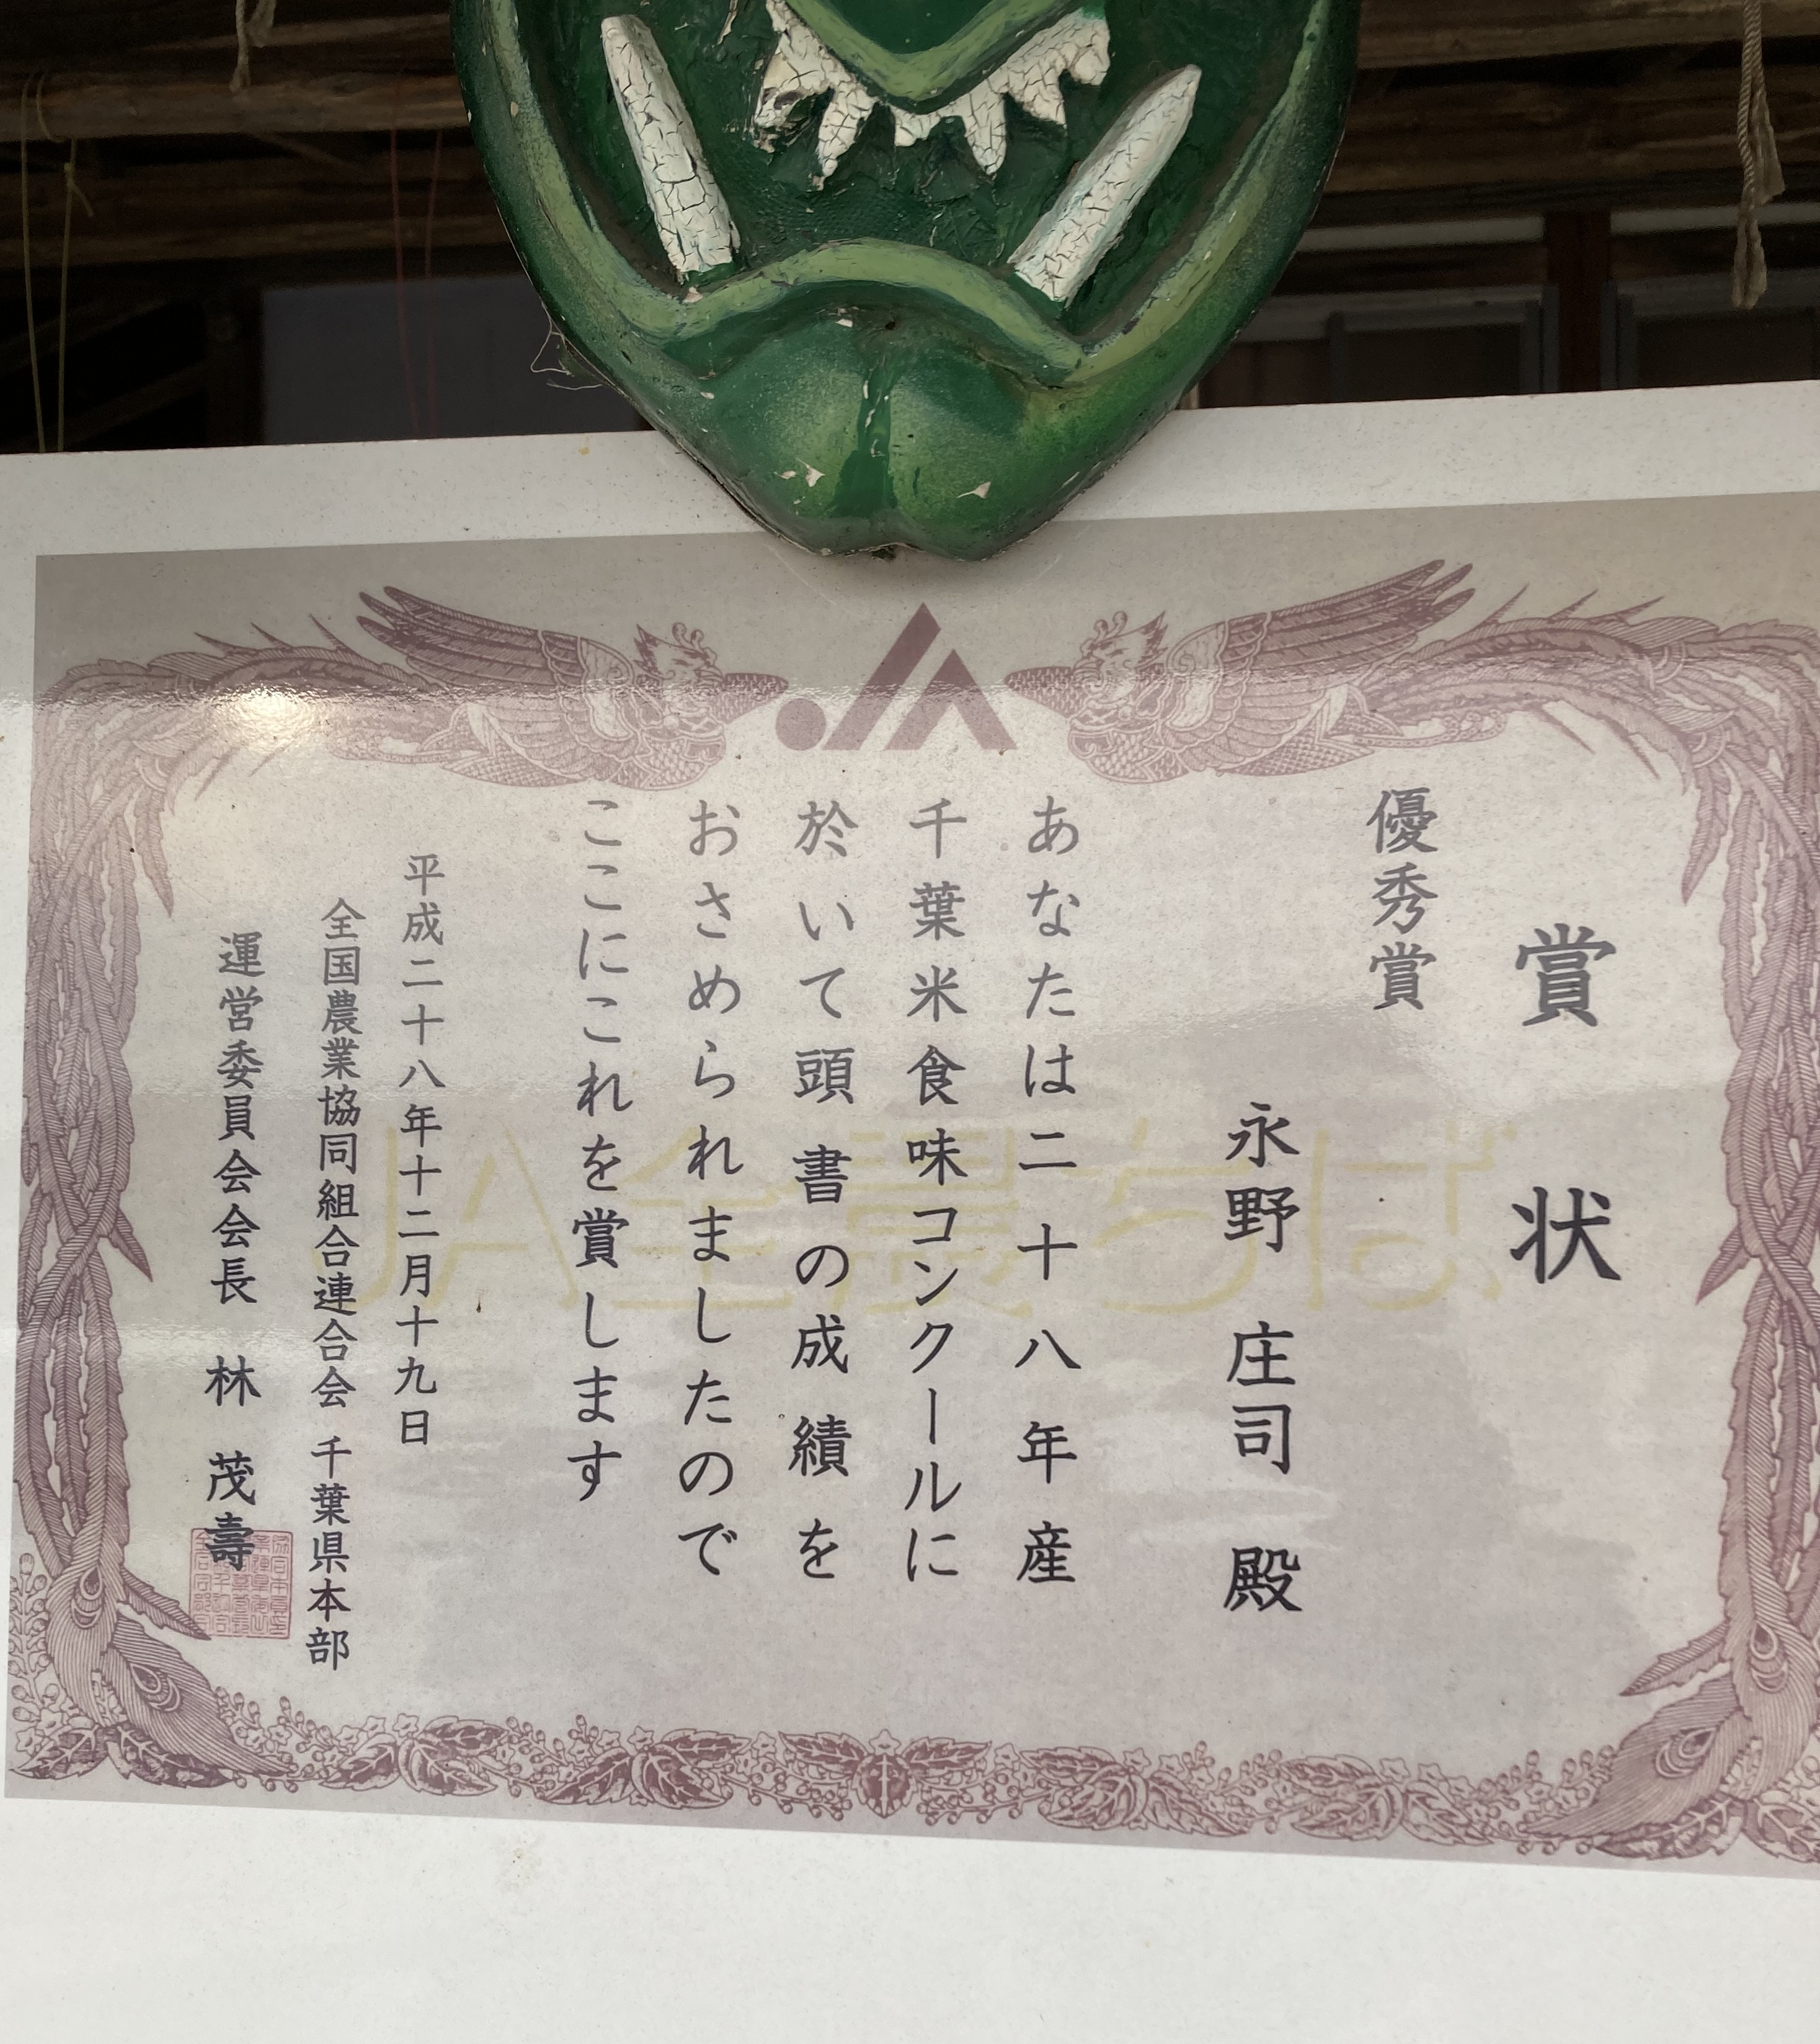 賞状
優秀賞
永野 庄司 殿
あなたは二十八年産
千葉米食味コンクールに
於いて頭書の成績を
おさめられましたので
ここにこれを賞します
平成二十八年十二月十九日
全国農業協同組合連合会 千葉県本部
運営委員会会長 林 茂壽
JA全農ちば
JA